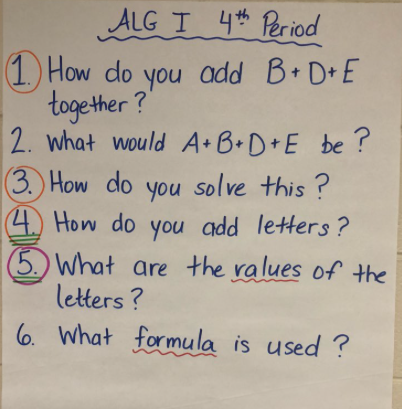 ALG I 4th Period
1. How do you add B+D+E
together?
2. What would A+B+D+E be?
3. How do you solve this?
4. How do you add letters?
5. What are the values of the
letters?
6. What formula is used?